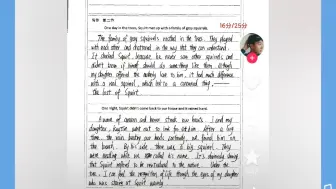 写作 第二节
16分/25分
One day in the trees, Squirt met up with a family of gray squirrels.
The family of gray squirrels rested in the trees. They played
with each other and chattered in the way that they can understand.
It shocked Squirt, because he never saw other squirrels and
didn't know if himself should do something like them. Although
my daughter offered the motherly love to him, it had much difference
with a real squirrel, which is a
the lost of Squirt.
One night, Squirt didn't come back to our house and it rained hard.
A wave of concern and horror struck our hearts. I and my
daughter, went out to look for After a long
time, the rain beating our bodies continually, we found him on
the branch. By his side, there was a big squirrel. They
were nestling while we called his name. It's obviously daring
that Squirt refused to be and in the nature. Under the
tree, I can feel the recognition of life through the eyes of my daughter
who was staring at Squirt